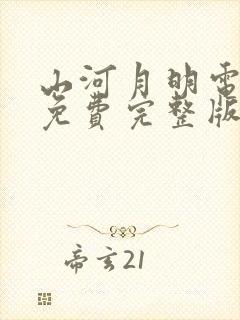 山河月明电
免费完整版
帝玄21